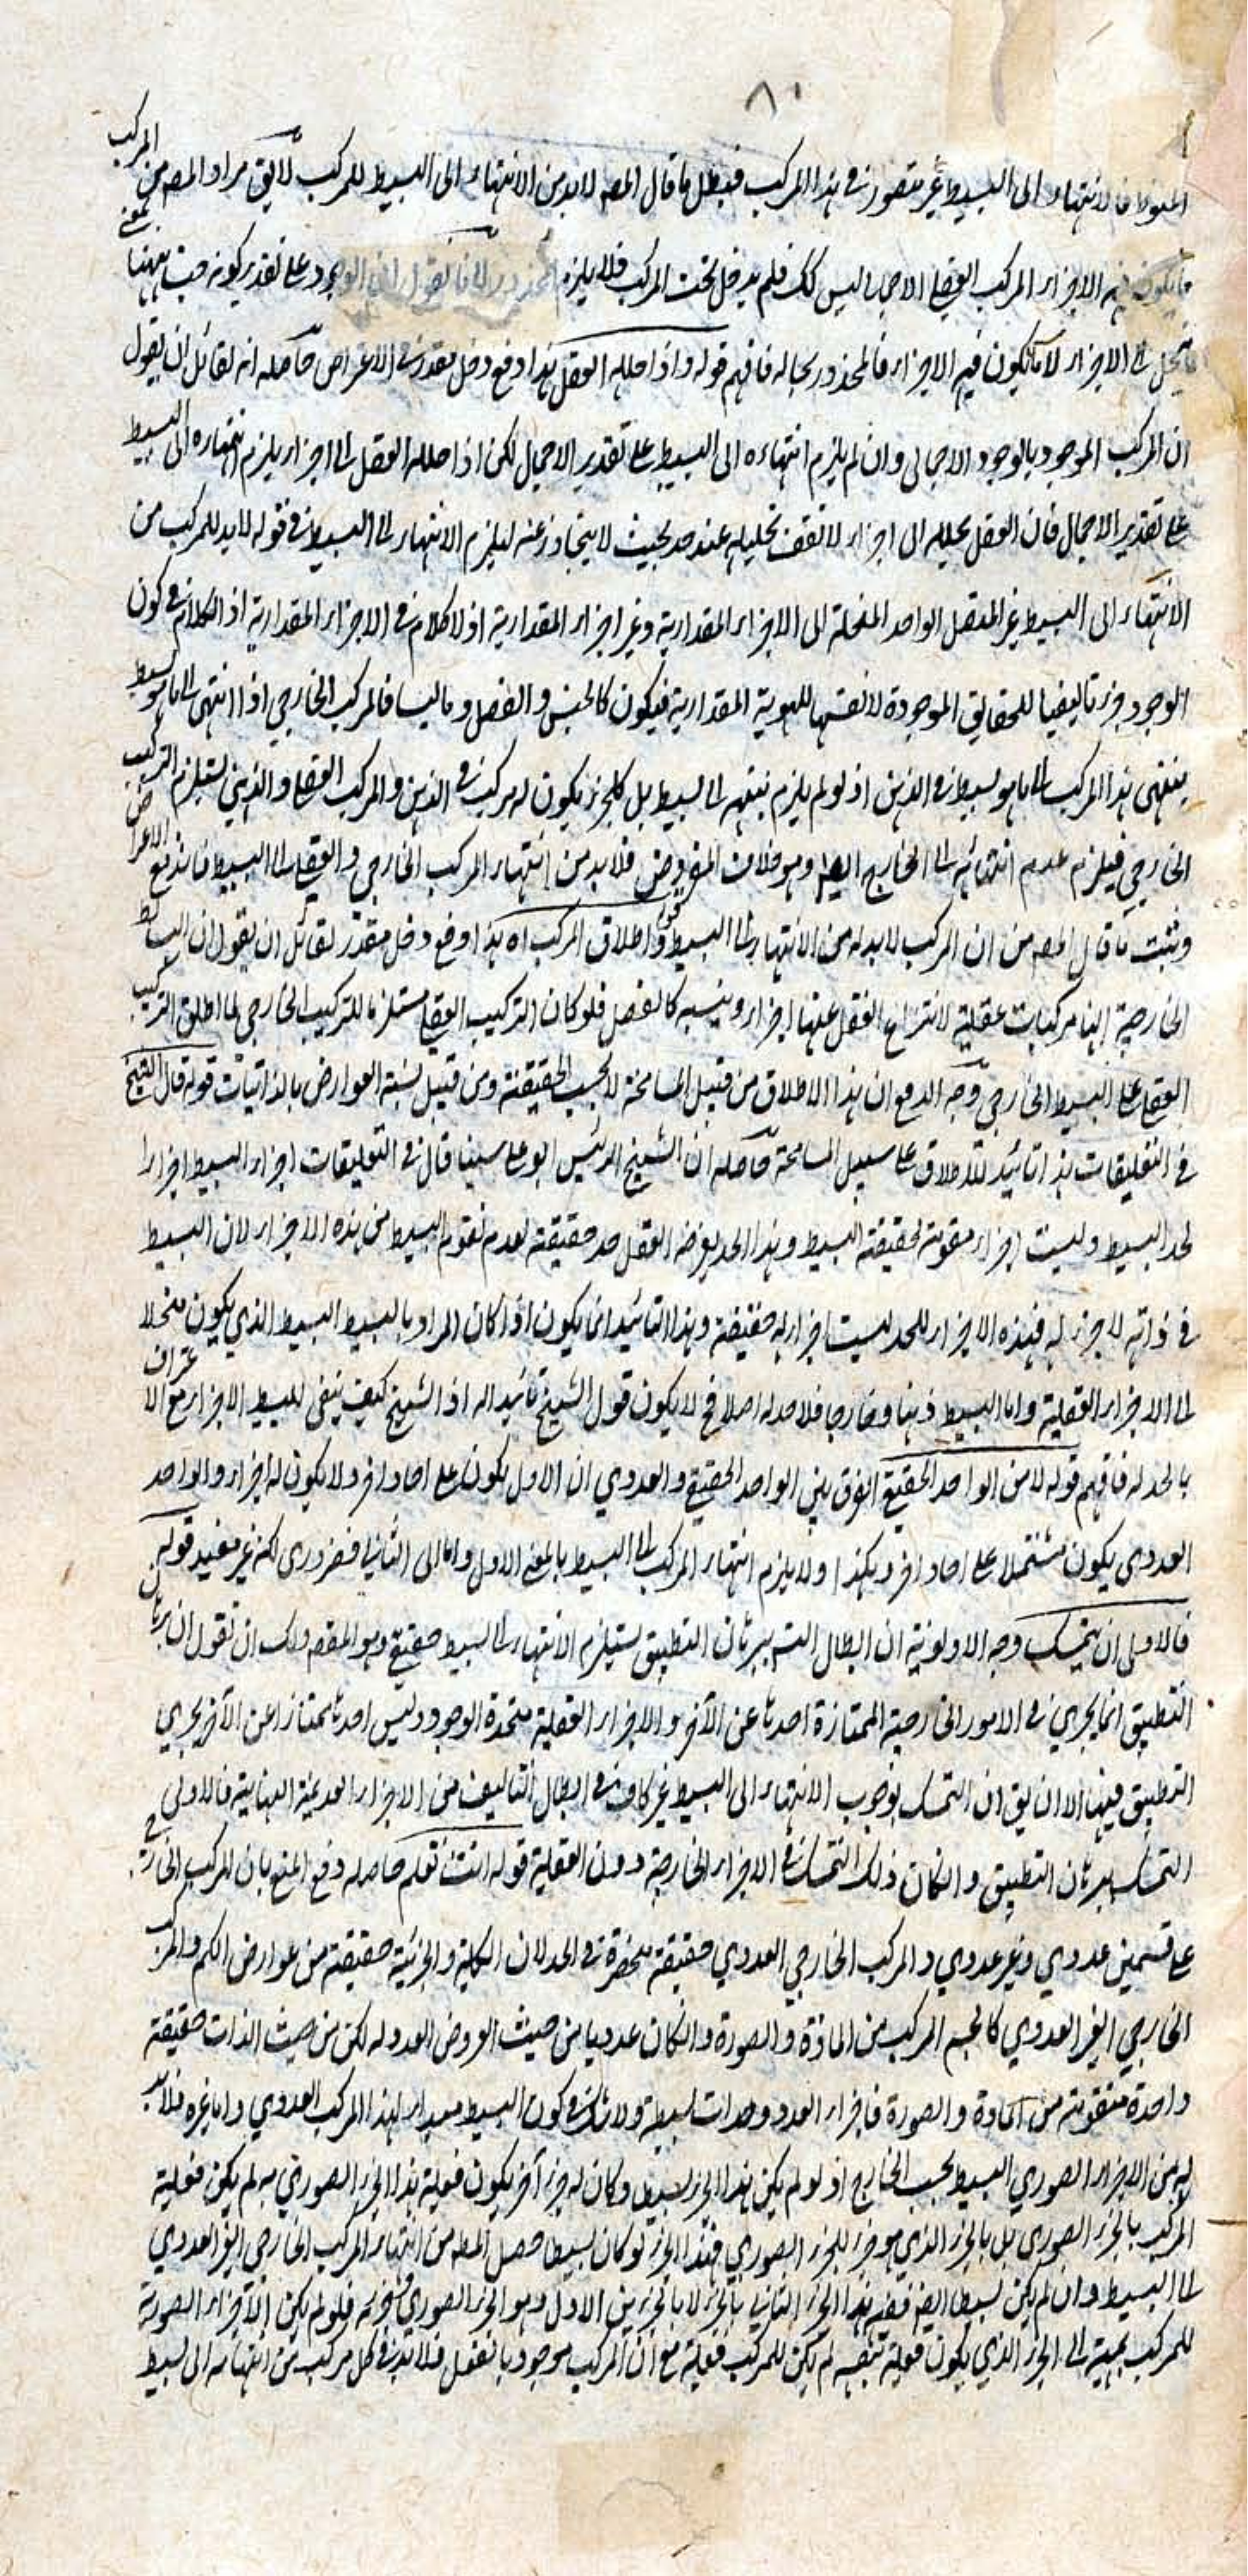 ٨١
الملحوظ فالانتهاء الى البسيط غير متصور في هذا المركب فبطل ما قال المصه لابد من الانتهاء الى البسيط للمركب لا يق مراد المصه من المركب
ما يكون فيه الاجزاء المركب العقلي الاجمالي ليس كك فلم يدخل تحت المركب فلا يلزم المحذور لانا نقول ان الوجود على تقدير كونه جنسا بمعنى
ينحل الى الاجزاء لا ما يكون فيه الاجزاء فالمحذور بحاله فافهم قوله واذا حلله العقل هذا دفع دخل مقدر في الاعراض حاصله انه لقائل ان يقول
ان المركب الموجود بالوجود الاجمالي وان لم يلزم انتهاءه الى البسيط على تقدير الاجمال لكن اذا حلله العقل الى اجزاء يلزم انتهاءه الى البسيط
على تقدير الاجمال فان العقل يحلله الى اجزاء لا تقف تحليله عند حد بحيث لا يتجاوز عنه ليلزم الانتهاء الى البسيط في قوله لابد للمركب من
الانتهاء الى البسيط غير المتصل الواحد المنحلة الى الاجزاء المقدارية وغير اجزاء المقدارية اذ لا كلام في الاجزاء المقدارية اذ الكلام في كون
الوجود جزء تاليفيا للحقايق الموجودة لا نفسها للهوية المقدارية فيكون كالجنس والفصل وما ليسا فالمركب الخارجي اذا انتهى الى ما هو بسيط
ينتهى هذا المركب الى ما هو بسيط في الذهن اذ لو لم يلزم ينته الى بسيط بل كل جزء يكون له مركب في الذهن والمركب العقلي والذهني يستلزم التركيب
الخارجي فيلزم عدم انتهائه الى الخارج ايضا وهو خلاف المفروض فلابد من انتهاء المركب الخارجي والعقلي الى البسيط فاندفع الاعراض
وثبت ما قال المصه من ان المركب لابد له من الانتهاء الى البسيط قوله واطلاق المركب اه هذا دفع دخل مقدر لقائل ان يقول ان البسائط
الخارجية انها مركبات عقلية لانتزاع العقل عنها اجزاء وجنسه كالفصل فلو كان التركيب العقلي مستلزما للتركيب الخارجي لما اطلق التركيب
العقلي على البسيط الخارجي وجه الدفع ان هذا الاطلاق من قبيل المسامحة لا بحسب الحقيقة ومن قبيل تشبه العوارض بالذاتيات قوله قال الشيخ
في التعليقات هذا تائيد للاطلاق على سبيل المسامحة حاصله ان الشيخ الرئيس ابو على سينا قال في التعليقات اجزاء البسيط اجزاء
لحد البسيط وليست اجزاء مقومة لحقيقة البسيط وهذا الحد يفرضه العقل حد حقيقته لعدم تقوم البسيط من هذه الاجزاء لان البسيط
في ذاته لا جزء له فهذه الاجزاء للحد ليست اجزاء له حقيقة وهذا التائيد انما يكون اذا كان المراد بالبسيط البسيط الذي يكون منحلا
الى الاجزاء العقلية واما البسيط ذهنا وخارجا فلا حد له اصلا فح لا يكون قول الشيخ تائيدا له اذ الشيخ كيف ينفى للبسيط الاجزاء مع الاعتراف
بالحد له فافهم قوله لا من الواحد الحقيقي الفرق بين الواحد الحقيقي والعددي ان الاول يكون على احاد اخر ولا يكون له اجزاء والواحد
العددي يكون مشتملا على احاد اخر وهكذا ولا يلزم انتهاء المركب الى البسيط بالمعنى الاول واما الى الثاني فضروري لكنه غير مفيد قوله
فالاولى ان يتمسك وجه الاولوية ان ابطال التسه ببرهان التطبيق يستلزم الانتهاء الى البسيط حقيقي وهو المقصه ولك ان تقول ان برهان
التطبيق انما يجري في الامور الخارجية الممتازة احدها عن الآخر والاجزاء العقلية متحدة الوجود وليس احدها ممتازا عن الآخر يجري
التطبيق فيها الا ان يق ان التمسك بوجوب الانتهاء الى البسيط غير كاف في ابطال التاليف من الاجزاء الغير المتناهية فالاولى
التمسك ببرهان التطبيق وان كان ذلك التمسك في الاجزاء الخارجية دون العقلية قوله انت تعلم حاصله دفع المنع بان المركب الخارجي
على قسمين عددي وغير عددي والمركب الخارجي العددي حقيقة منحصرة في الحد لان الكلية والجزئية حقيقة من عوارض الكم والمركب
الخارجي الغير العددي كالجسم المركب من المادة والصورة وان كان عدديا من حيث العروض العدد له لكن من حيث الذات حقيقة
واحدة متقومة من المادة والصورة فاجزاء العدد وحدات بسيطة ولا شك في كون البسيط مبدأ لهذا المركب العددي واما غيره فلابد
له من الاجزاء الصوري البسيط بحسب الخارج اذ لو لم يكن هذا الجزء بسيطا وكان له جزء آخر يكون فعلية هذا الجزء الصوري به لم يكن فعلية
المركب بالجزء الصوري بل بالجزء الذي هو جزء للجزء الصوري فهذا الجزء لو كان بسيطا حصل المطه من انتهاء المركب الخارجي الغير العددي
الى البسيط وان لم يكن بسيطا ايضه ففيه هذا الجزء الثاني بالجزء لا بالجزئين الاول وهو الجزء الصوري وجزئه فلو لم يكن الاجزاء الصورية
للمركب بمهية الى الجزء الذي يكون فعلية بنفسه لم يكن للمركب فعلية مع ان المركب موجود بالفعل فلابد في كل مركب من انتهائه الى بسيط